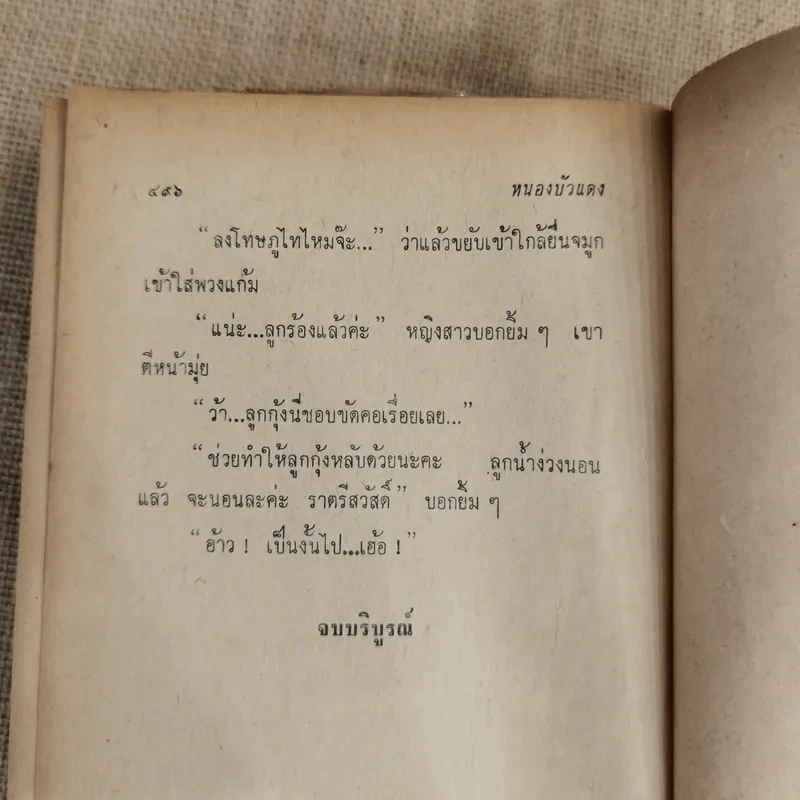 ๔๙๖ หนองบัวแดง
“ลงโทษภูไทไหมจ๊ะ...” ว่าแล้วขยับเข้าใกล้ยื่นจมูก
เข้าใส่พวงแก้ม
“แน่ะ...ลูกร้องแล้วค่ะ” หญิงสาวบอกยิ้ม ๆ เขา
ตีหน้ามุ่ย
“ว้า...ลูกกุ้งนี่ชอบขัดคอเรื่อยเลย...”
“ช่วยทำให้ลูกกุ้งหลับด้วยนะคะ ลูกน้ำง่วงนอน
แล้ว จะนอนละค่ะ ราตรีสวัสดิ์” บอกยิ้ม ๆ
“อ้าว ! เป็นงั้นไป...เฮ้อ !”
จบบริบูรณ์